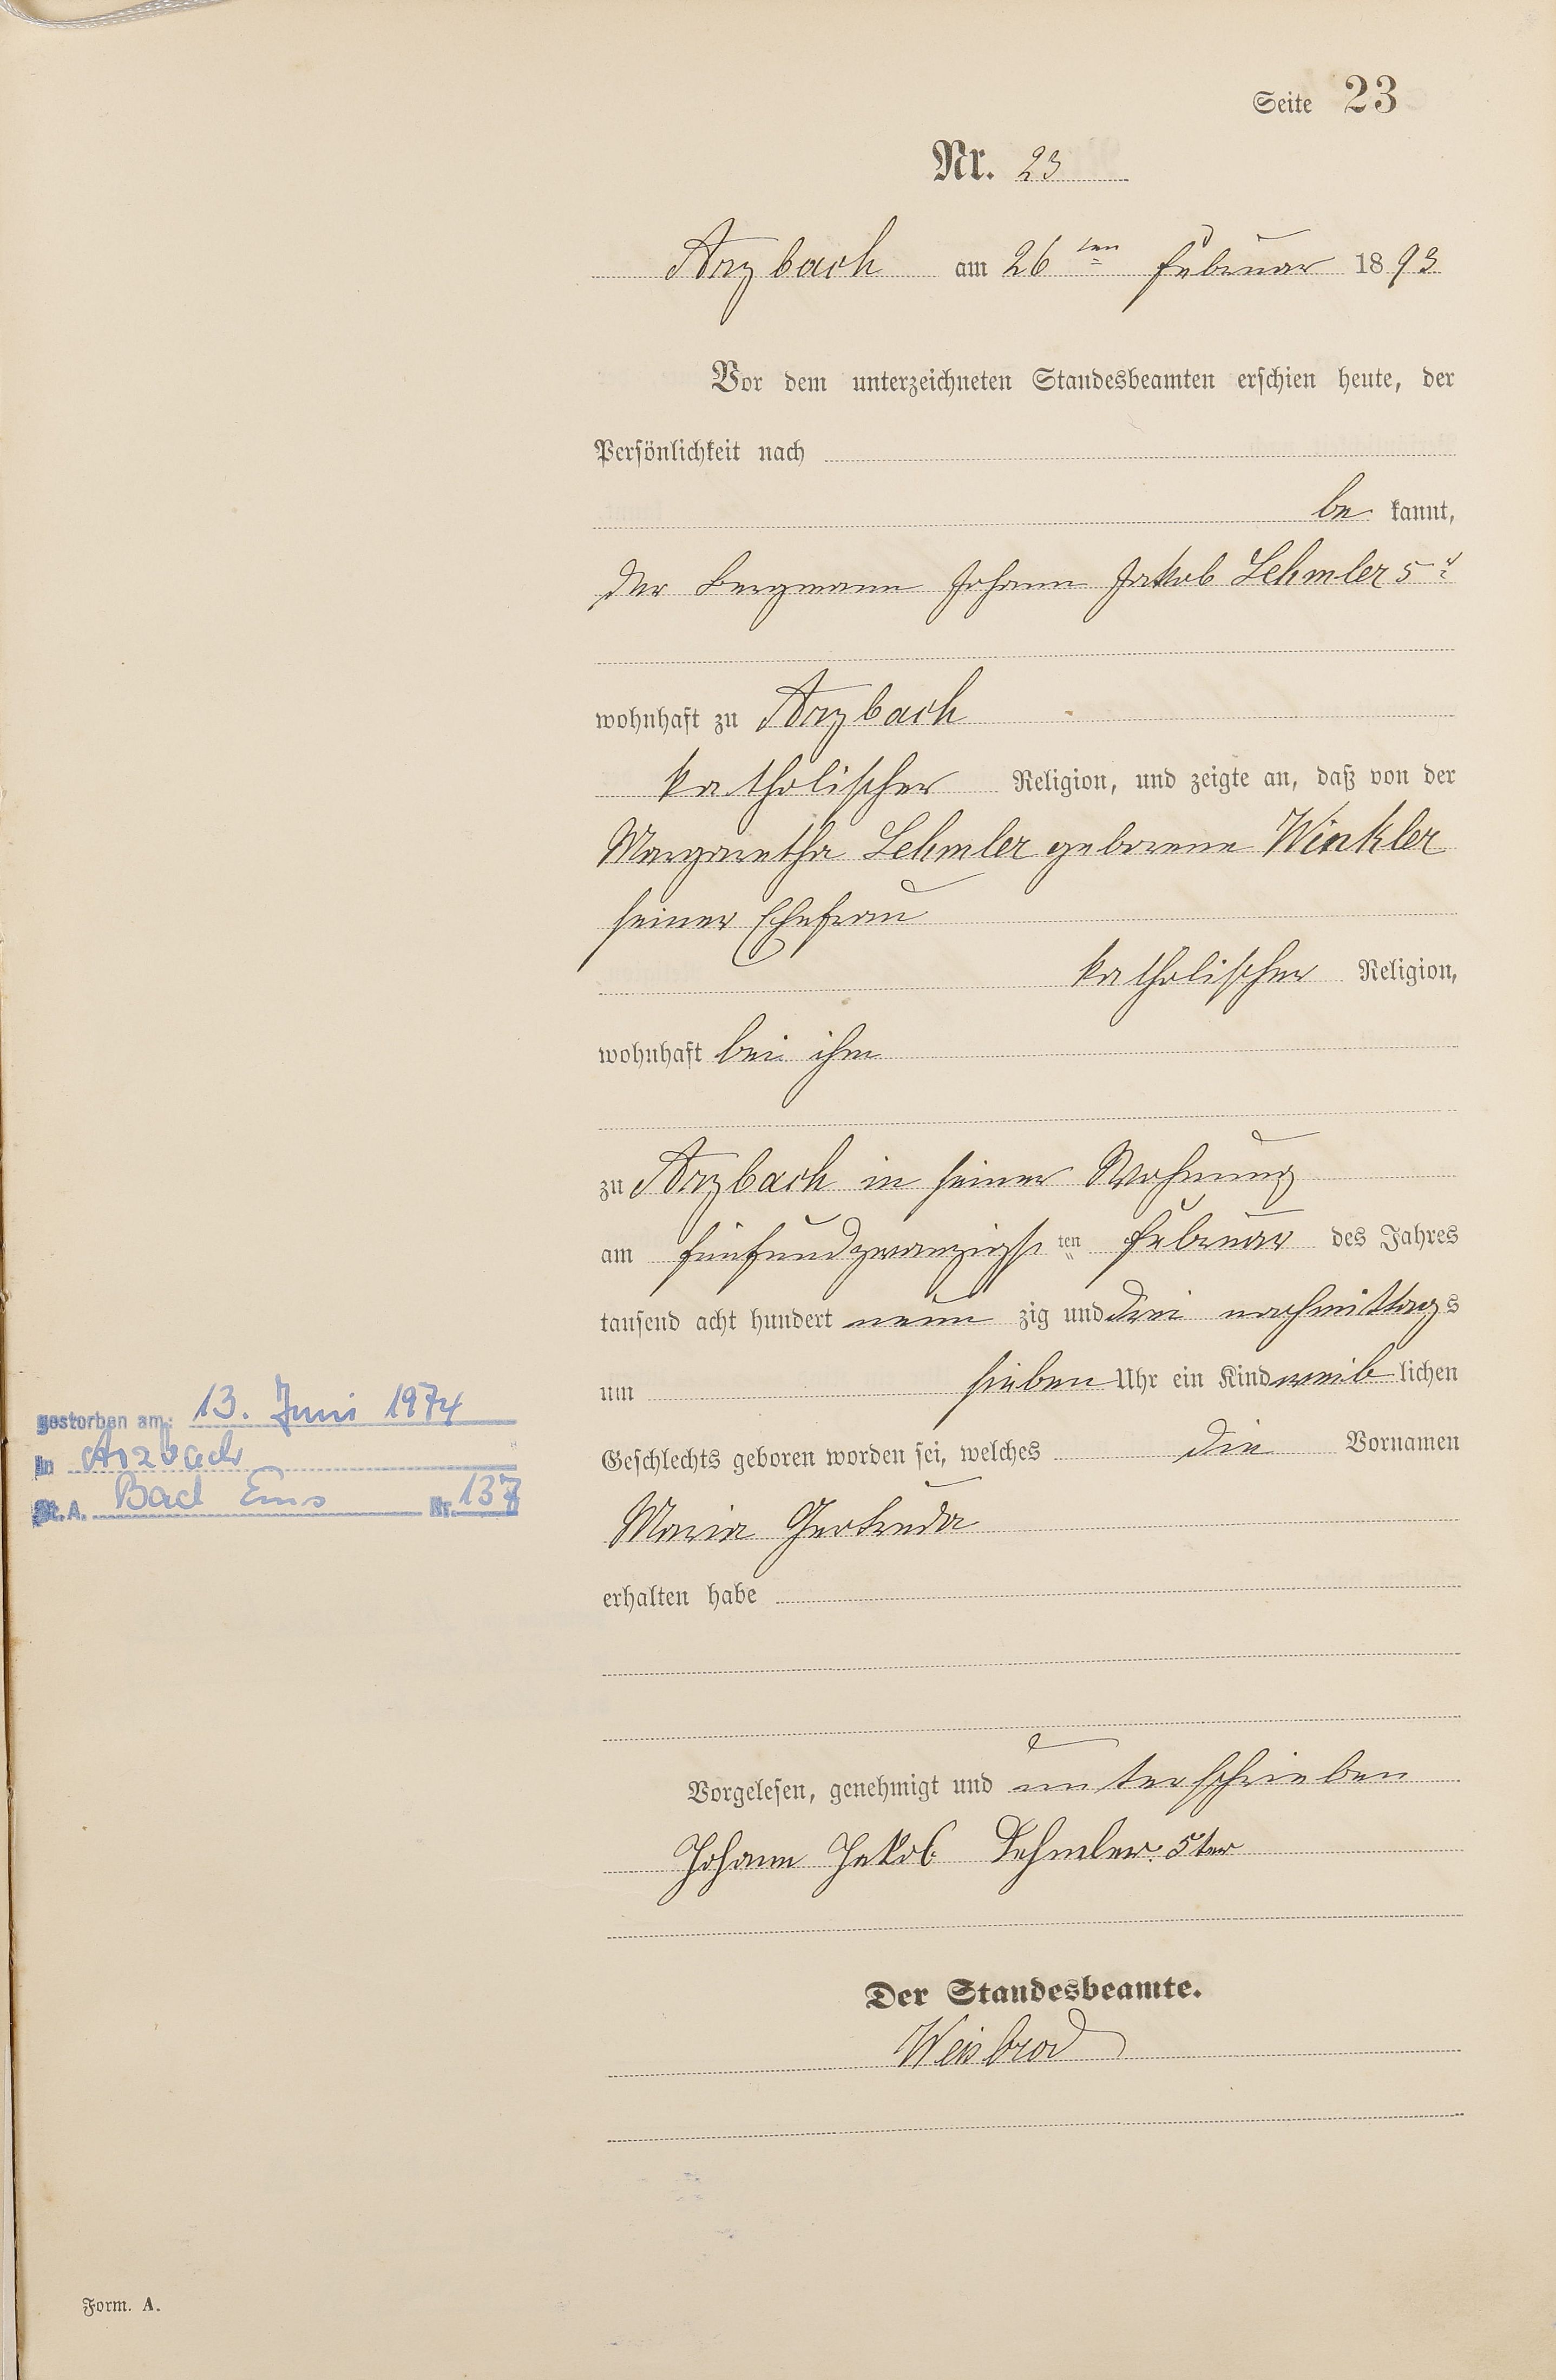 Seite 23
Nr. 23
Arzbach am 26ten Februar 1893
Vor dem unterzeichneten Standesbeamten erschien heute, der
Persönlichkeit nach
be kannt,
der Bergmann Johann Jakob Lehmler 5r
wohnhaft zu Arzbach
katholischer Religion, und zeigte an, daß von der
Margaretha Lehmler geborene Winkler
seiner Ehefrau
katholischer Religion,
wohnhaft bei ihm
zu Arzbach in seiner Wohnung
am fünfundzwanzigsten Februar des Jahres
tausend acht hundert neun zig und drei nachmittags
um sieben Uhr ein Kind weib lichen
Geschlechts geboren worden sei, welches die Vornamen
Maria Gertruda
erhalten habe
Vorgelesen, genehmigt und unterschrieben
Johann Jakob Lehmler. 5ter
Der Standesbeamte.
Weisbrod
gestorben am: 13. Juni 1974
in Arzbach
St. A. Bad Ems Nr. 137
Form. A.